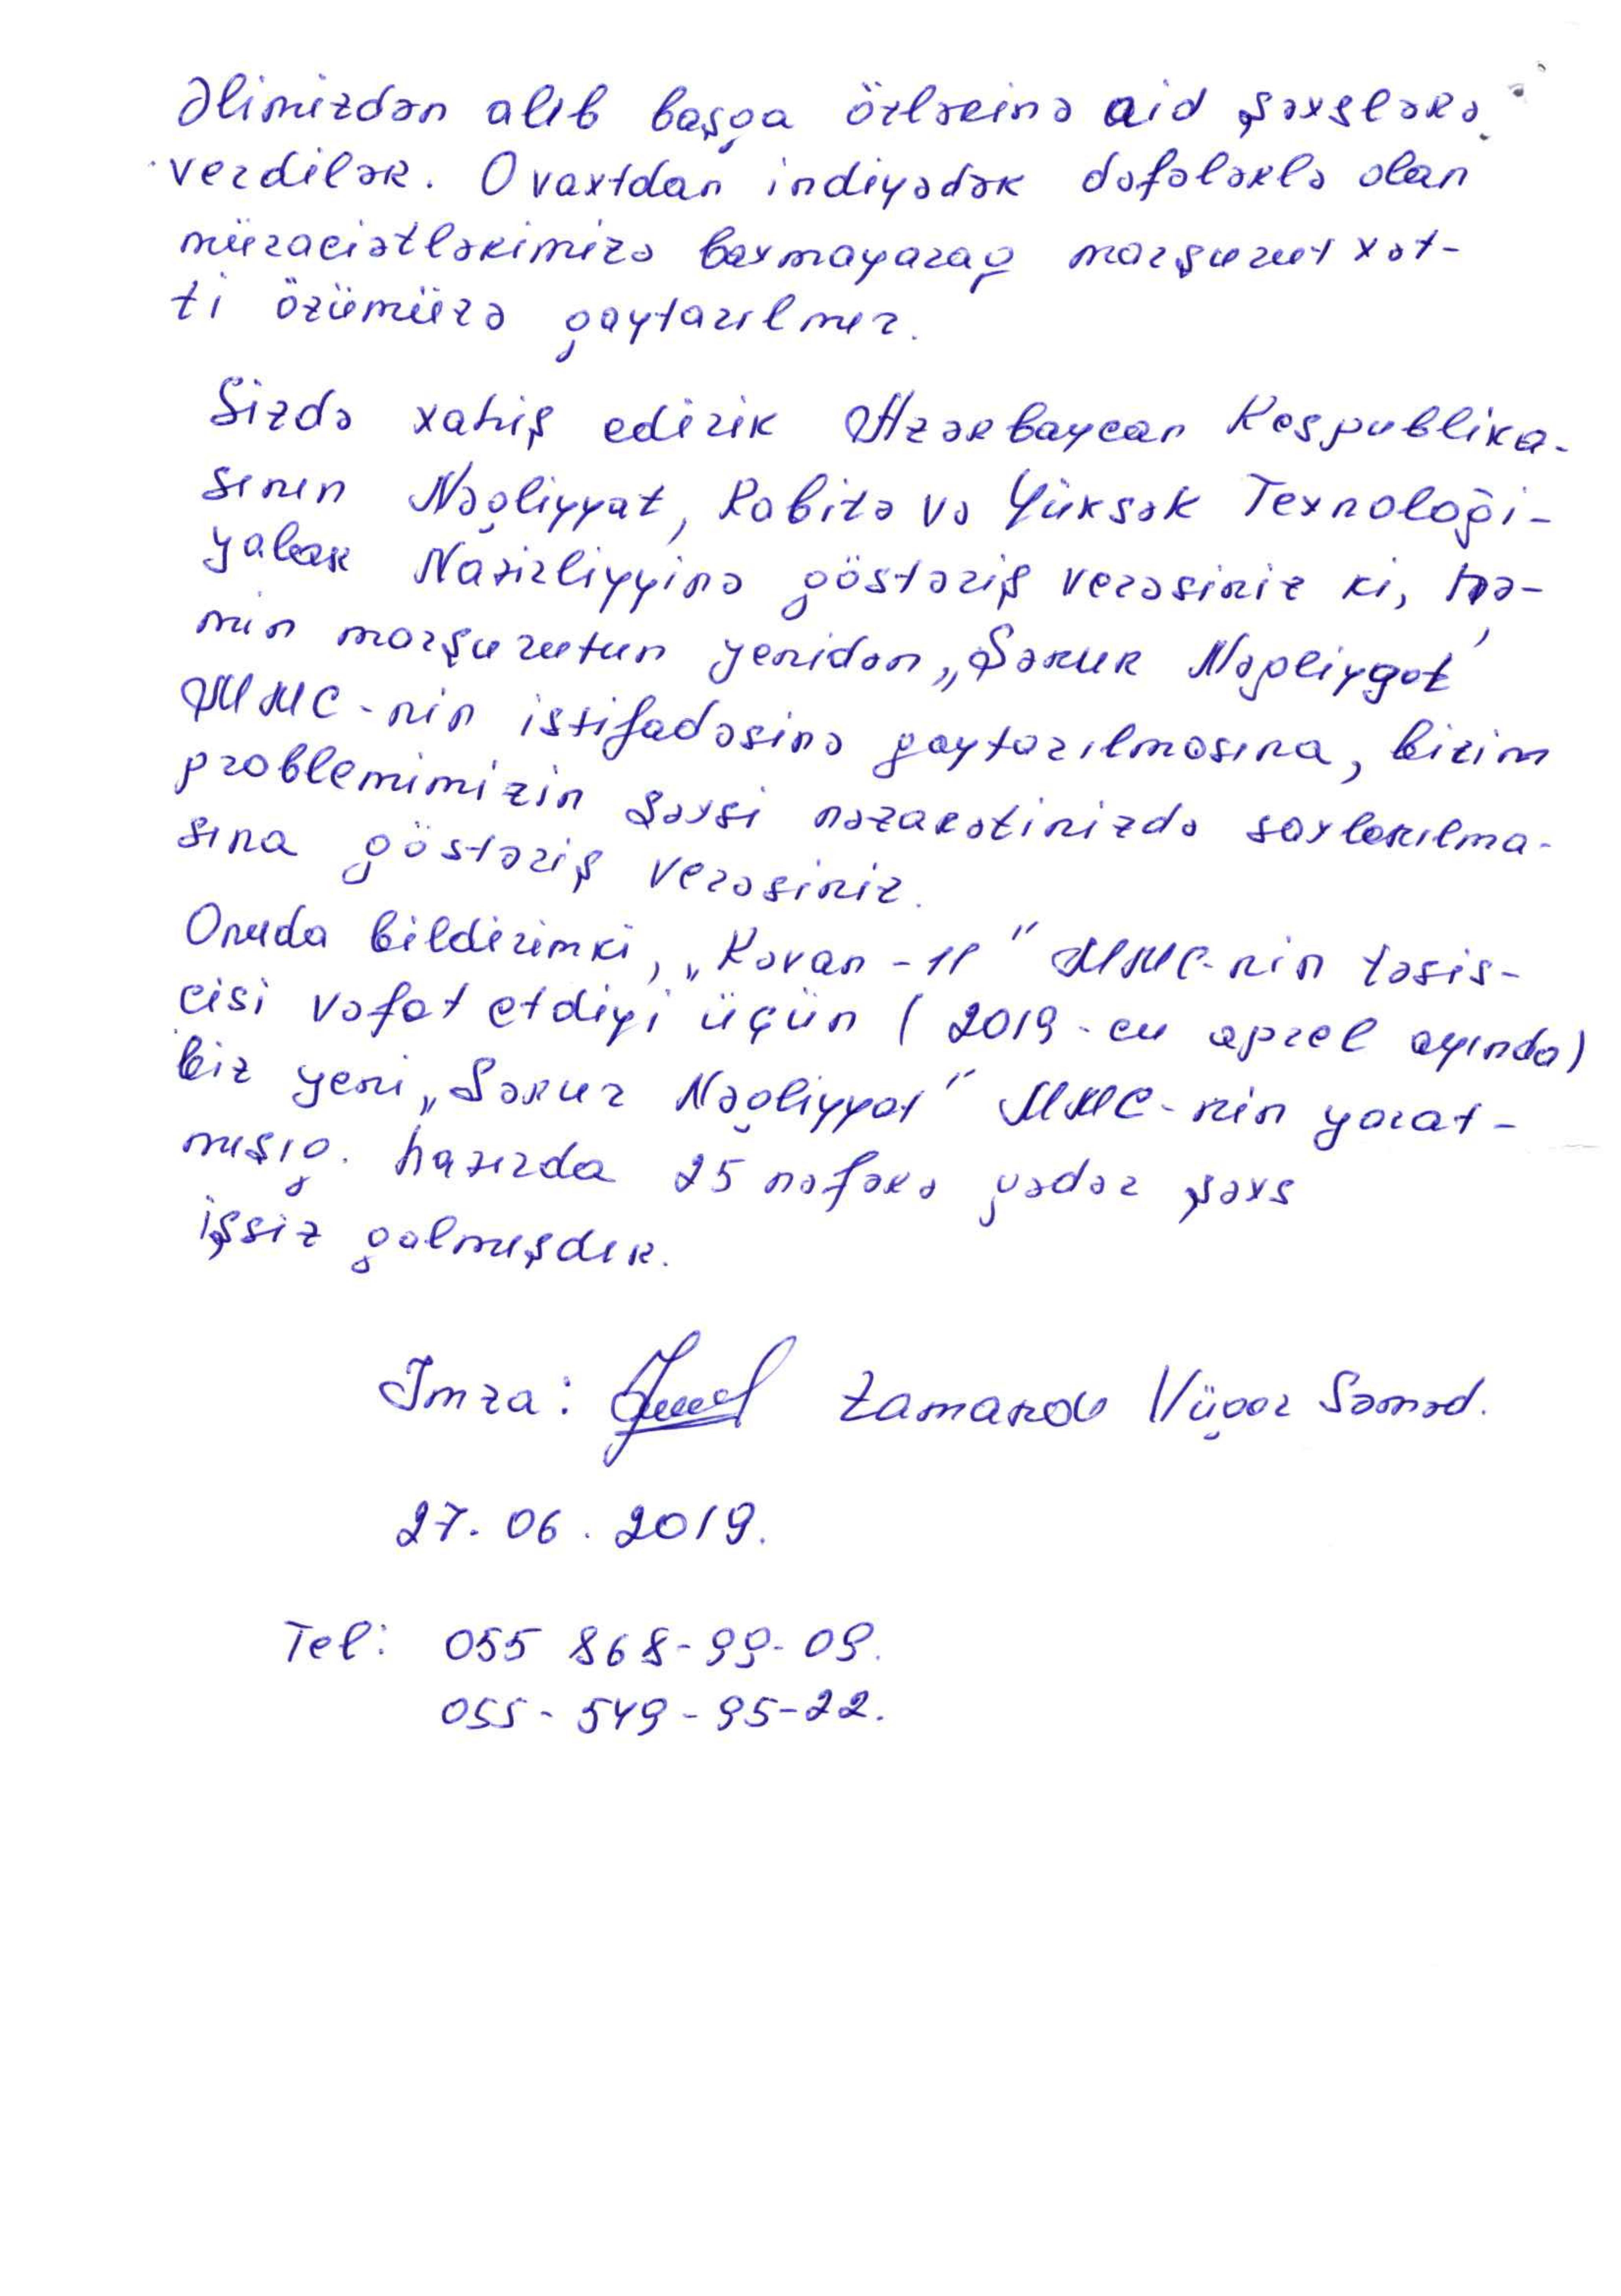 Əlimizdən alıb başqa özlərinə aid şəxslərə
verdilər. O vaxtdan indiyədək dəfələrlə olan
müraciətlərimizə baxmayaraq marşurut xət-
ti özümüzə qaytarılmır.
Sizdə xahiş edirik Azərbaycan Respublika-
sının Nəqliyyat, Rabitə və Yüksək Texnologi-
yalar Nazirliyyinə göstəriş verəsiniz ki, hə-
min marşurutun yenidən „Şərur Nəqliyyat"
MMC-nin istifadəsinə qaytarılmasına, bizim
problemimizin şəxsi nəzarətinizdə saxlanılma-
sına göstəriş verəsiniz.
Onuda bildirimki, „Kəvan-11" MMC-nin təsis-
cisi vəfat etdiyi üçün (2019-cu aprel ayında)
biz yeni „Şərur Nəqliyyat" MMC-nin yarat-
mışıq. hazırda 25 nəfərə qədər şəxs
işsiz qalmışdır.
İmza: Zamanov Vüqar Səməd.
27.06.2019.
Tel: 055 868-99-09.
055-549-95-22.